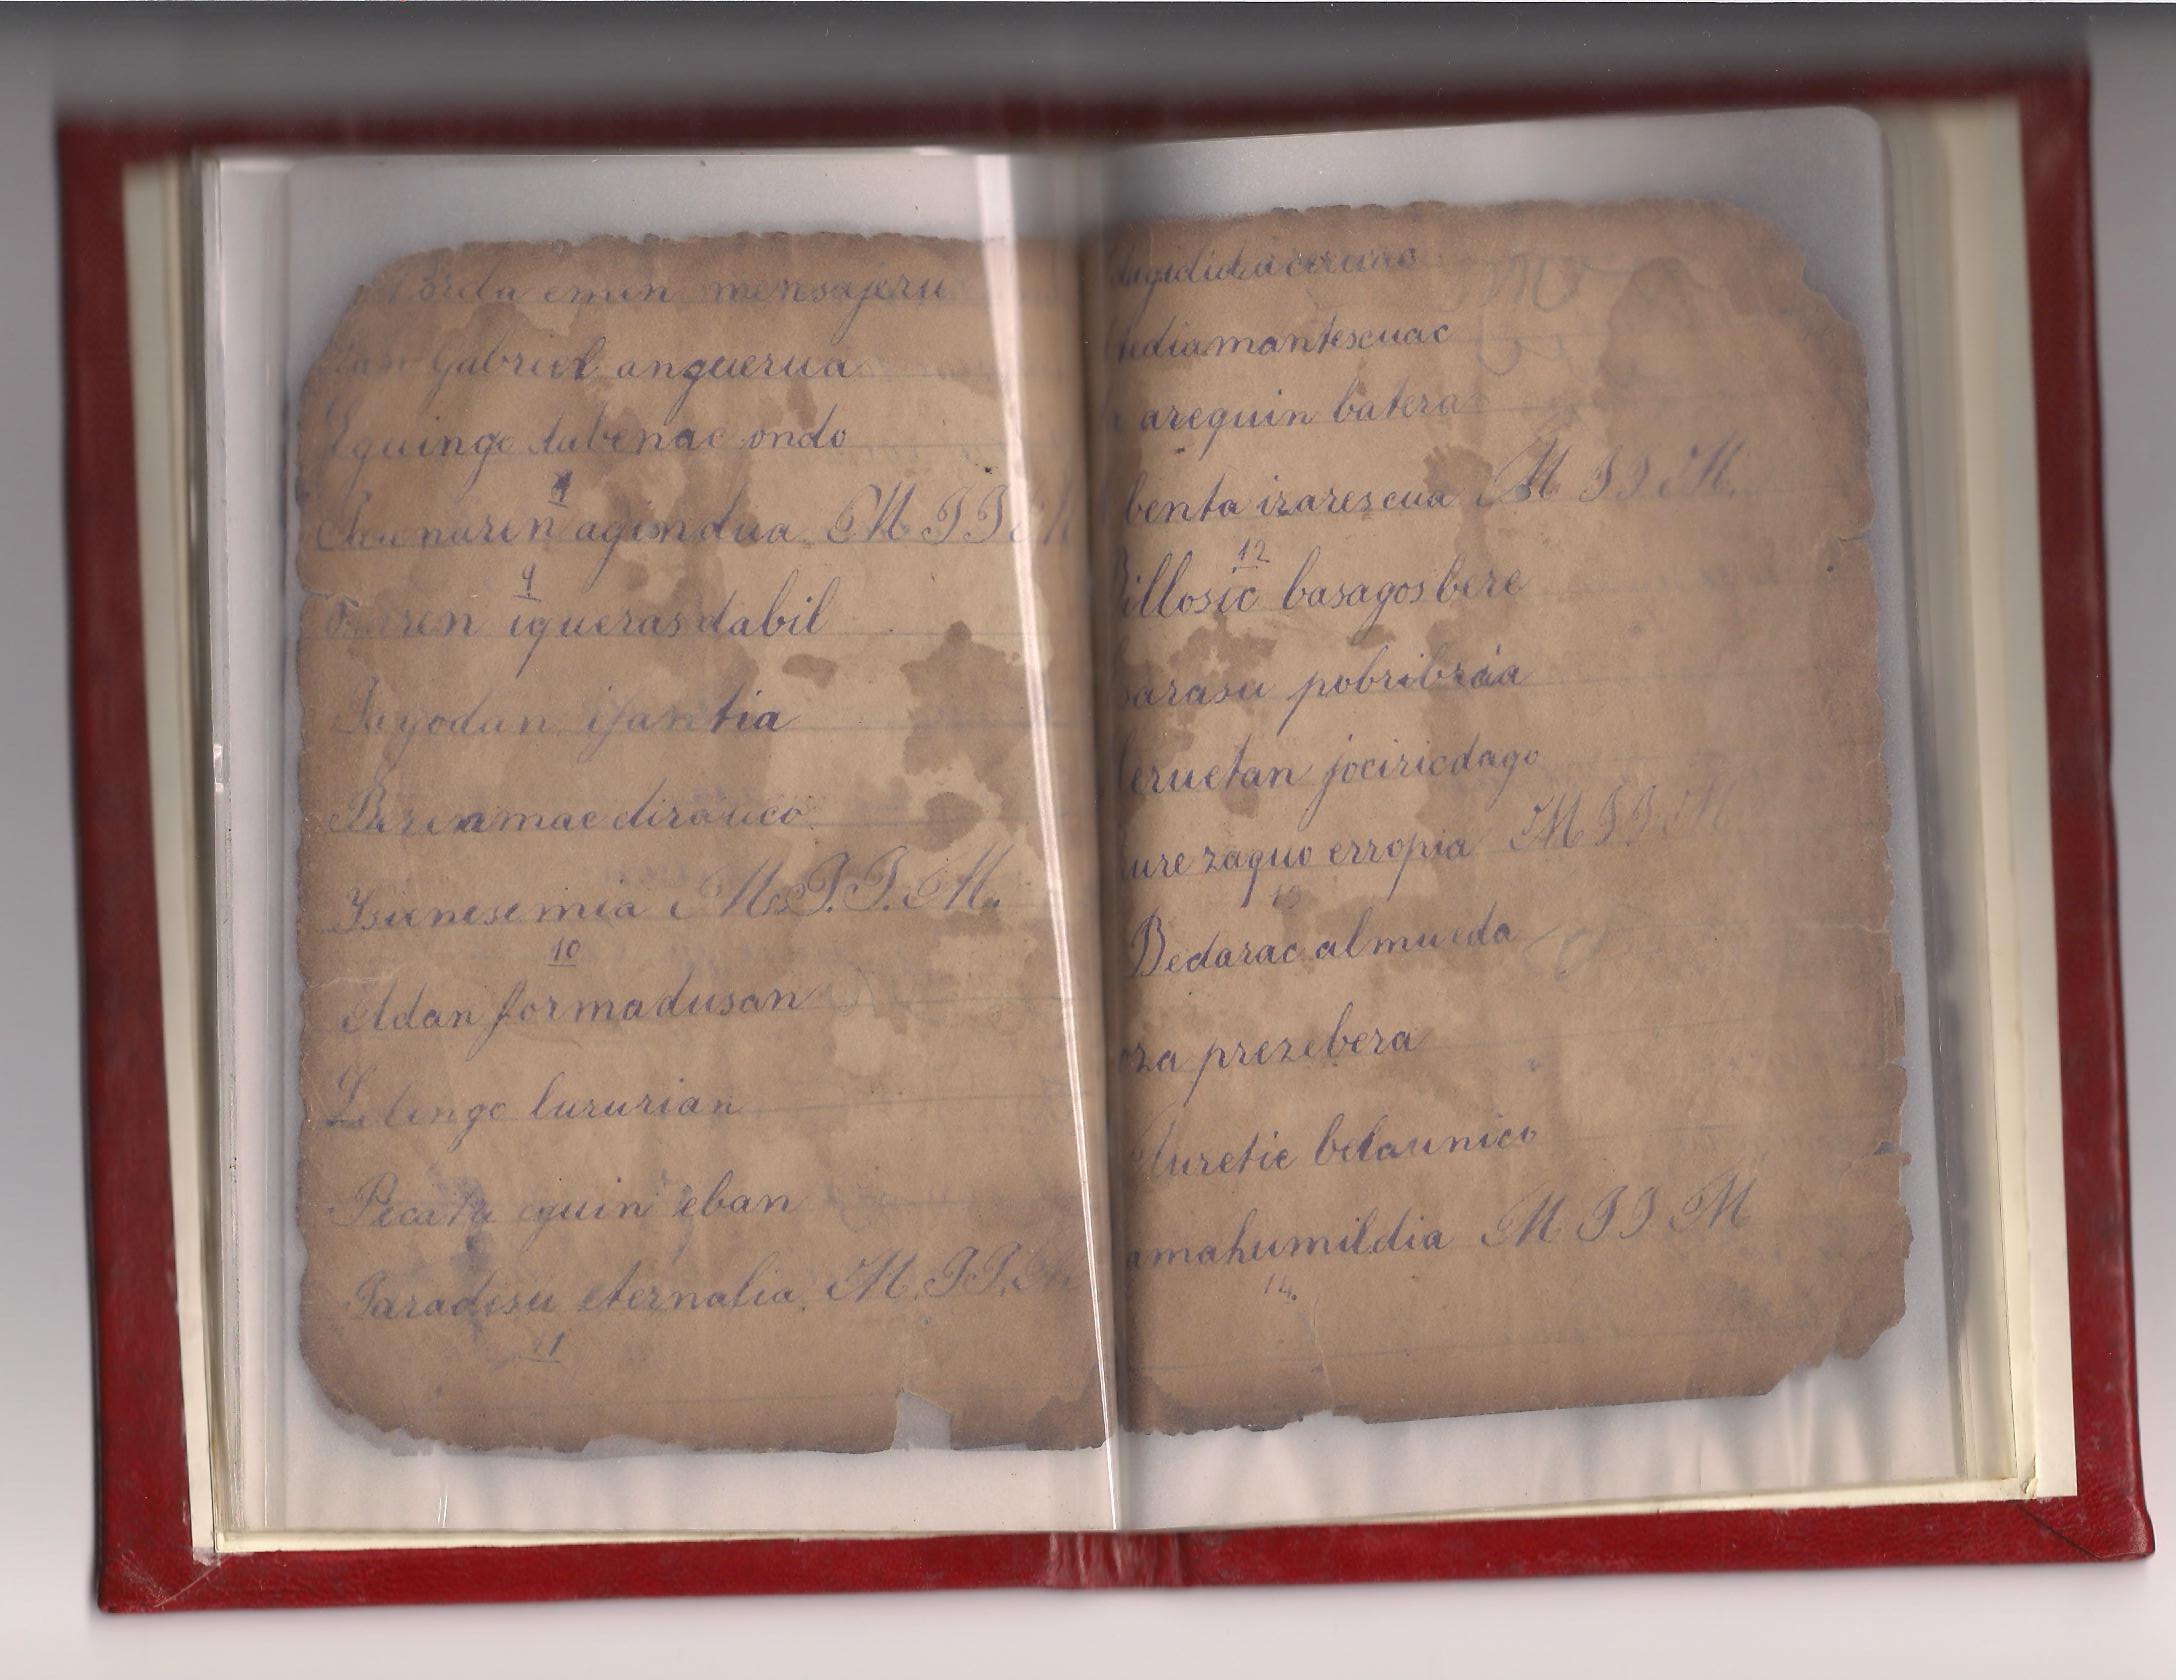 Borda emen mensajeru
San Gabriel anguerua
Eguingo dubenac ondo
Jaunaren agindua M J J M
9
igueras dabil
Jayodan ifantia
Berenamac dirauco
Bienesemia M. J. J. M.
10
Adan formadusan
Lelengo lururian
Pecatu eguin eban
Paradisu eternalia. M. J J. M
11
tediamantescuac
arequin batera
benta izarescua M J J M.
12
Billosic basagosbere
sarasu pobribraia
Ceruetan jociricdago
zure zaguo erropia M J J M
13
Bedarac almueda
oza prezebera
Auretic belaunico
amahumildia M J J M
14.